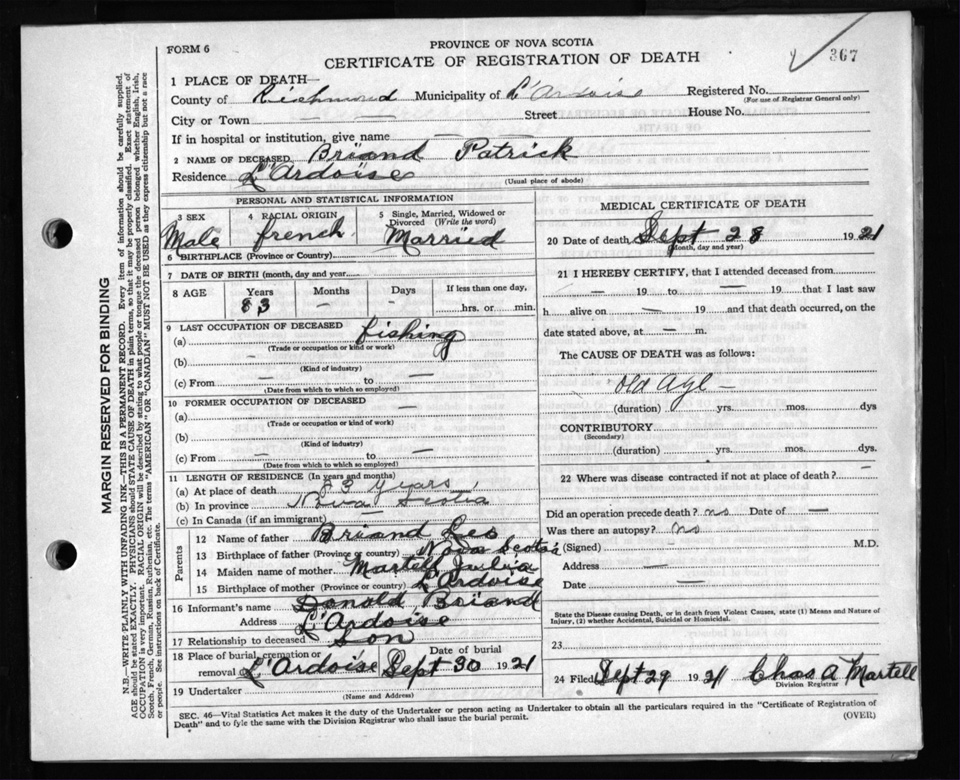 FORM 6
PROVINCE OF NOVA SCOTIA
CERTIFICATE OF REGISTRATION OF DEATH
367
1 PLACE OF DEATH—
County of Richmond Municipality of L'Ardoise Registered No.
(For use of Registrar General only)
City or Town — — Street — House No.
If in hospital or institution, give name — —
2 NAME OF DECEASED Briand Patrick
Residence L'Ardoise
(Usual place of abode)
PERSONAL AND STATISTICAL INFORMATION
3 SEX 4 RACIAL ORIGIN 5 Single, Married, Widowed or Divorced (Write the word)
Male french Married
6 BIRTHPLACE (Province or Country)
7 DATE OF BIRTH (month, day and year)
8 AGE Years Months Days If less than one day,
83 — — hrs. or min.
9 LAST OCCUPATION OF DECEASED
(a) fishing
(Trade or occupation or kind or work)
(b) —
(Kind of industry)
(c) From — to —
(Date from which to which so employed)
10 FORMER OCCUPATION OF DECEASED
(a) —
(Trade or occupation or kind of work)
(b)
(Kind of industry)
(c) From — to
(Date from which to which so employed)
11 LENGTH OF RESIDENCE (In years and months)
(a) At place of death 83 years
(b) In province Nova Scotia
(c) In Canada (if an immigrant)
Parents
12 Name of father Briand Leo
13 Birthplace of father (Province or country) Nova Scotia
14 Maiden name of mother Martell Julia
15 Birthplace of mother (Province or country) L'Ardoise
16 Informant's name Donold Briand
Address L'Ardoise
17 Relationship to deceased Son
18 Place of burial, cremation or removal L'Ardoise Date of burial Sept 30 1921
19 Undertaker
(Name and Address)
MEDICAL CERTIFICATE OF DEATH
20 Date of death Sept 28 1921
(Month, day and year)
21 I HEREBY CERTIFY, that I attended deceased from
— 19 to — 19 that I last saw
h alive on — 19 and that death occurred, on the
date stated above, at — m.
The CAUSE OF DEATH was as follows:
Old Age —
(duration) yrs. mos. dys
CONTRIBUTORY
(Secondary)
(duration) yrs. mos. dys.
22 Where was disease contracted if not at place of death? —
Did an operation precede death? no Date of —
Was there an autopsy? no
(Signed) M.D.
Address —
Date —
State the Disease causing Death, or in death from Violent Causes, state (1) Means and Nature of
Injury, (2) whether Accidental, Suicidal or Homicidal.
23
24 Filed Sept 29 1921 Chas A Martell
Division Registrar
SEC. 46—Vital Statistics Act makes it the duty of the Undertaker or person acting as Undertaker to obtain all the particulars required in the "Certificate of Registration of
Death" and to fyle the same with the Division Registrar who shall issue the burial permit.
(OVER)
MARGIN RESERVED FOR BINDING
N.B.—WRITE PLAINLY WITH UNFADING INK—THIS IS A PERMANENT RECORD. Every item of information should be carefully supplied.
AGE should be stated EXACTLY. PHYSICIANS should STATE CAUSE OF DEATH in plain terms, so that it may be properly classified. Exact statement of
OCCUPATION is very important. RACIAL ORIGIN will be described by stating to what people or tongue the deceased person belonged whether English, Irish,
Scotch, French, German, Russian, Ruthenian, etc. The terms "AMERICAN" OR "CANADIAN" MUST NOT BE USED as they express citizenship but not a race
or people. See instructions on back of Certificate.